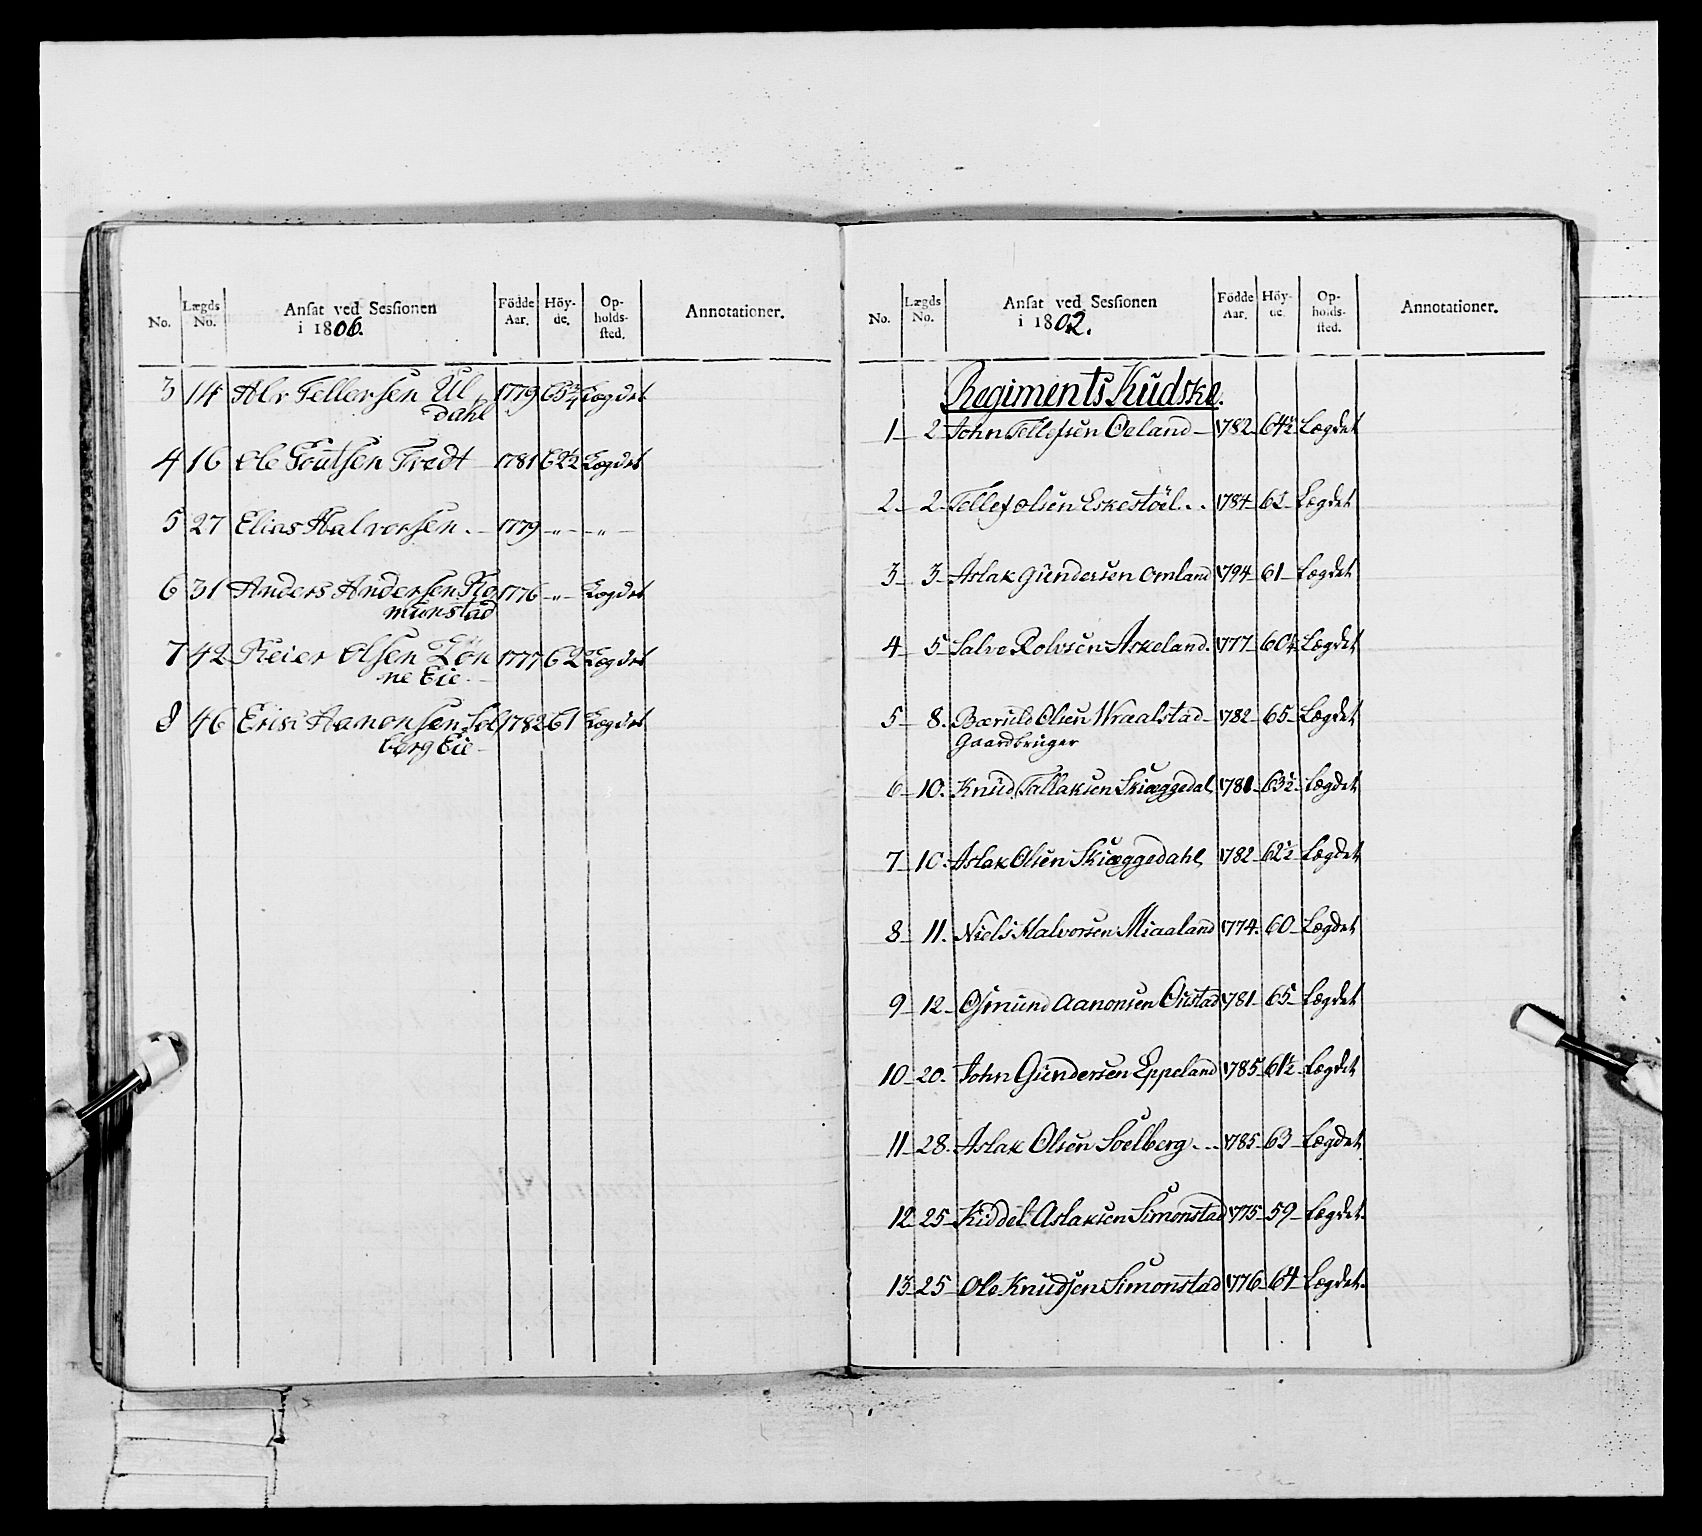 No. Lægds No. Ansat ved Sessionen i 1806. Födde Aar. Höy-de. Op-holds-sted. Annotationer.
3 14 Alv Tellefsen Ul 1779 65¾ Lægdet
dahl
4 16 Ole Goutsen Tredt 1781 62½ Lægdet
5 27 Elias Halvorsen. 1779 -"- -"-
6 31 Anders Andersen Ro 1776 -"- Lægdet
munstad
7 42 Reier Olsen Løn 1777 62 Lægdet
ne Eie.
8 46 Erisi Aanonsen Sol 1782 61 Lægdet
berg Eie
No. Lægds No. Ansat ved Sessionen i 1802. Födde Aar. Höy-de. Op-holds-sted. Annotationer.
Regiments Kudske.
1 2 John Tellefsen Oeland 1782 64½ Lægdet
2 2 Tellef Olsen Eskestöel 1784 63 Lægdet
3 3 Aslak Gundersen Omland 1794 61 Lægdet
4 5 Salve Rolvsen Askeland. 1777 60¼ Lægdet
5 8. Bæruld Olsen Wraalstad 1782 65 Lægdet
Gaardbruger
6 10. Knud Tallaksen Skiæggedal 1781 63½ Lægdet
7 10. Aslak Olsen Skiæggedahl 1782 62½ Lægdet
8 11. Niels Halvorsen Miaaland 1774 60 Lægdet
9 12 Osmund Aanonsen Oustad 1781 65 Lægdet
10 20. John Gundersen Eppeland 1785 61½ Lægdet
11 28. Aslak Olsen Soelberg 1785 63 Lægdet
12 25 Kiddel Aslaksen Simonstad 1775 59 Lægdet.
13 25 Ole Knudsen Simonstad 1776 64 Lægdet.